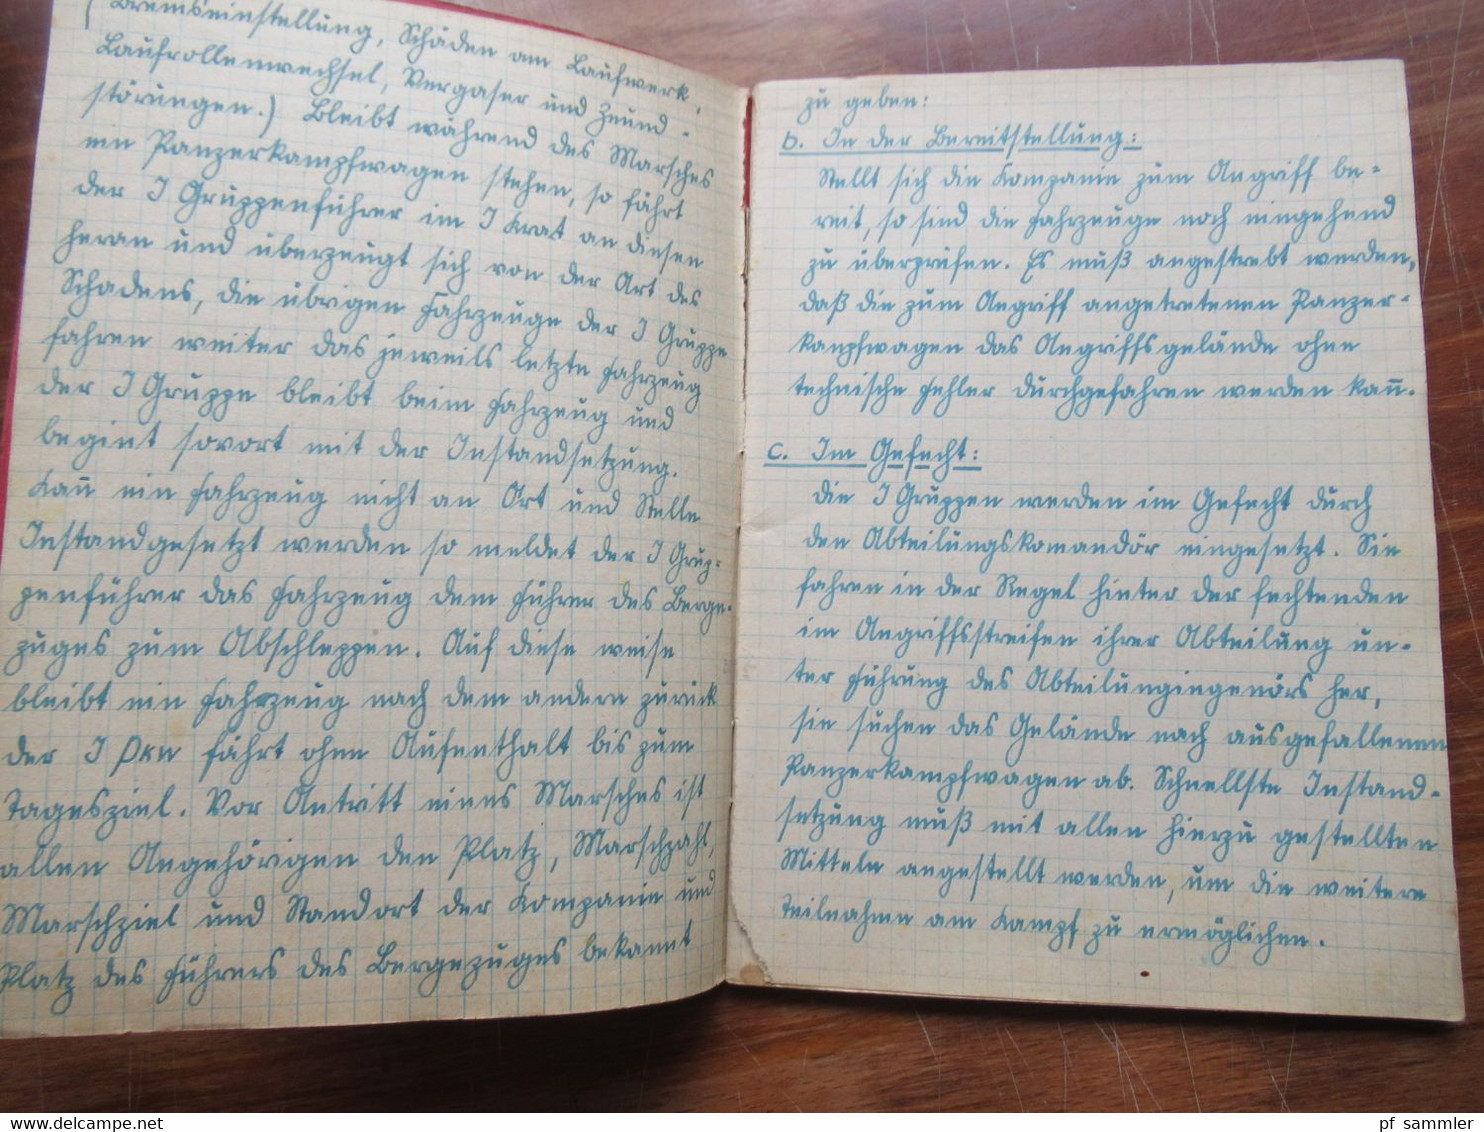 (Bremseinstellung, Schäden am Laufwerk,
Laufrollenwechsel, Vergaser und Zeund-
störungen.) Bleibt während des Marsches
ein Panzerkampfwagen stehen, so fährt
der I Gruppenführer im I Krat an diesen
heran und überzeugt sich von der Art des
Schadens, die übrigen Fahrzeuge der I Gruppe
fahren weiter das jeweils letzte Fahrzeug
der I Gruppe bleibt beim Fahrzeug und
begint sovort mit der Instandsetzung.
Kan̄ ein Fahrzeug nicht an Ort und Stelle
Instandgesetzt werden so meldet der I Grup-
penführer das Fahrzeug dem Führer des Berge-
zuges zum Abschleppen. Auf diese weise
bleibt ein Fahrzeug nach dem andern zurück
der I Pkw fährt ohne Aufenthalt bis zum
Tagesziel. Vor Antritt eines Marsches ist
allen Angehörigen den Platz, Marschzahl,
Marschziel und Standort der Kompanie und
Platz des Führers des Bergezuges bekannt
zu geben:
b. In der Bereitstellung:
Stellt sich die Kompanie zum Angriff be-
reit, so sind die Fahrzeuge noch eingehend
zu überprüfen. Es muß angestrebt werden,
daß die zum Angriff angetretenen Panzer-
kampfwagen das Angriffsgelände ohne
technische Fehler durchgefahren werden kan̄.
c. Im Gefecht:
Die I Gruppen werden im Gefecht durch
den Abteilungskomandör eingesetzt. Sie
fahren in der Regel hinter der fechtenden
im Angriffsstreifen ihrer Abteilung un-
ter Führung des Abteilungingenörs her,
sie suchen das Gelände nach ausgefallenen
Panzerkampfwagen ab. Schnellste Instand-
setzung muß mit allen hierzu gestellten
Mitteln angestellt werden, um die weitere
Teilnahme am Kampf zu ermöglichen.
pf sammler